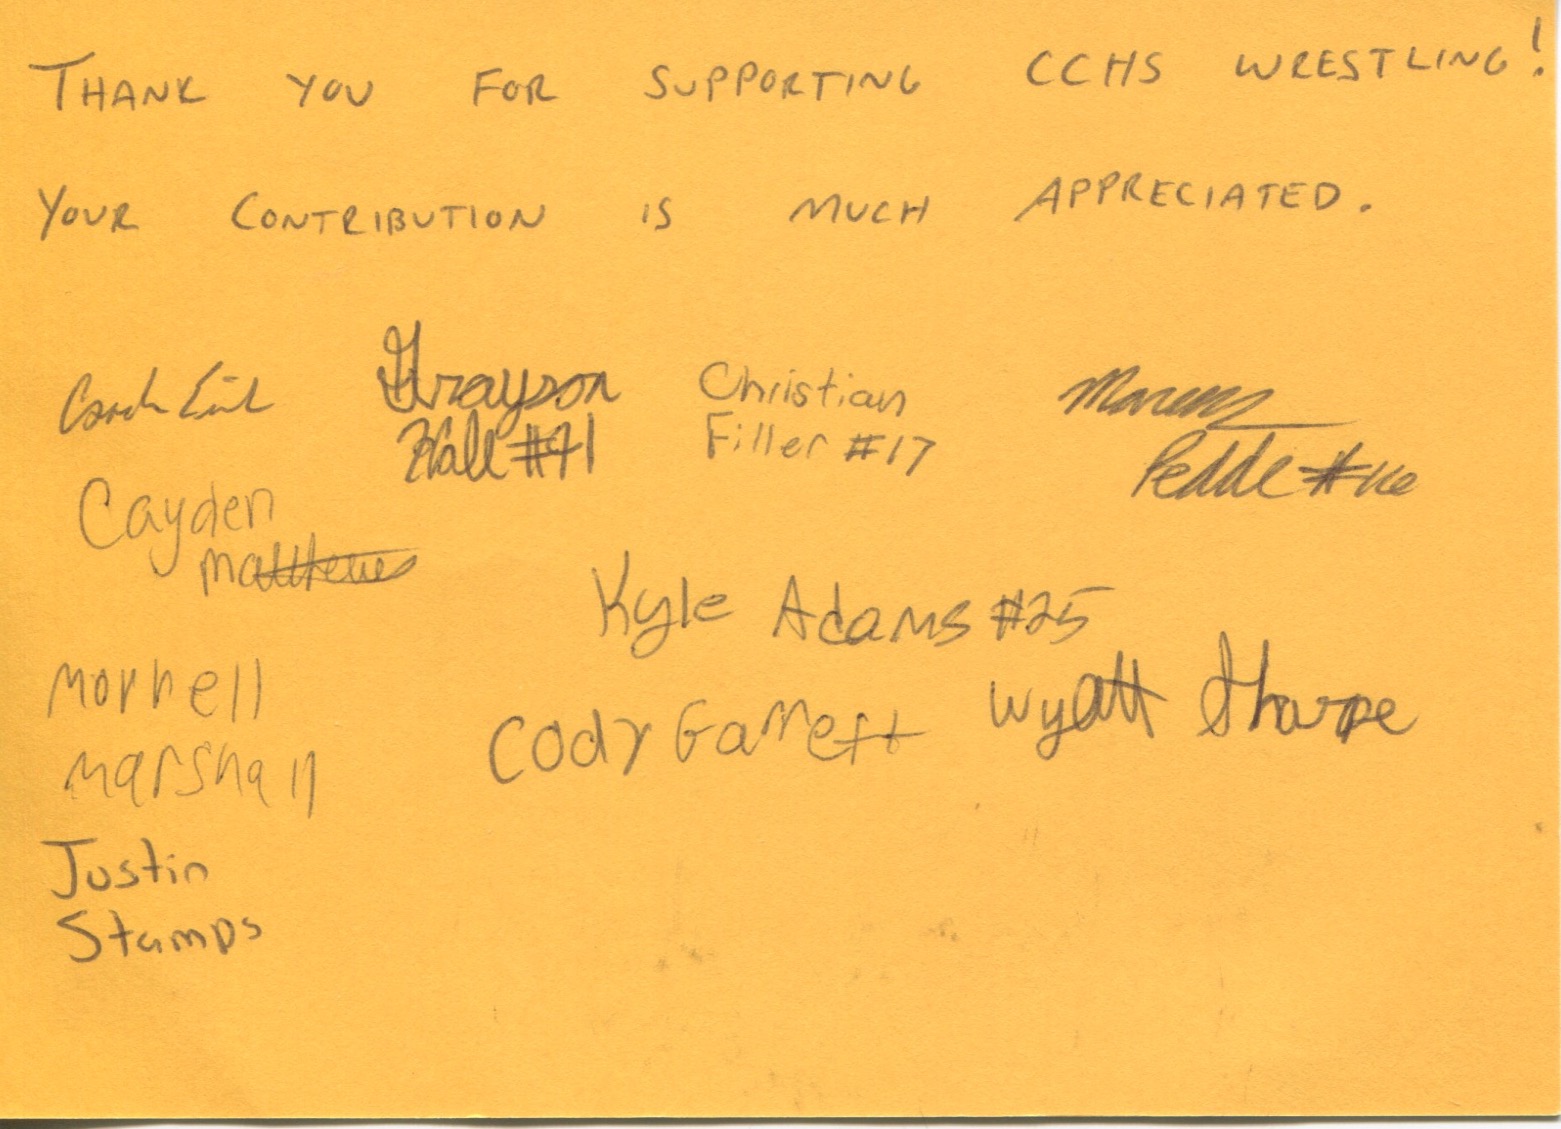 THANK YOU FOR SUPPORTING CCHS WRESTLING!
YOUR CONTRIBUTION IS MUCH APPRECIATED.
Coach
Grayson
Hall #71
Christian
Filler #17
Marcus
Pedde #
Cayden
Matthews
Kyle Adams #25
Morhell
Marshall
Cody Garrett
Wyatt Tharpe
Justin
Stamps